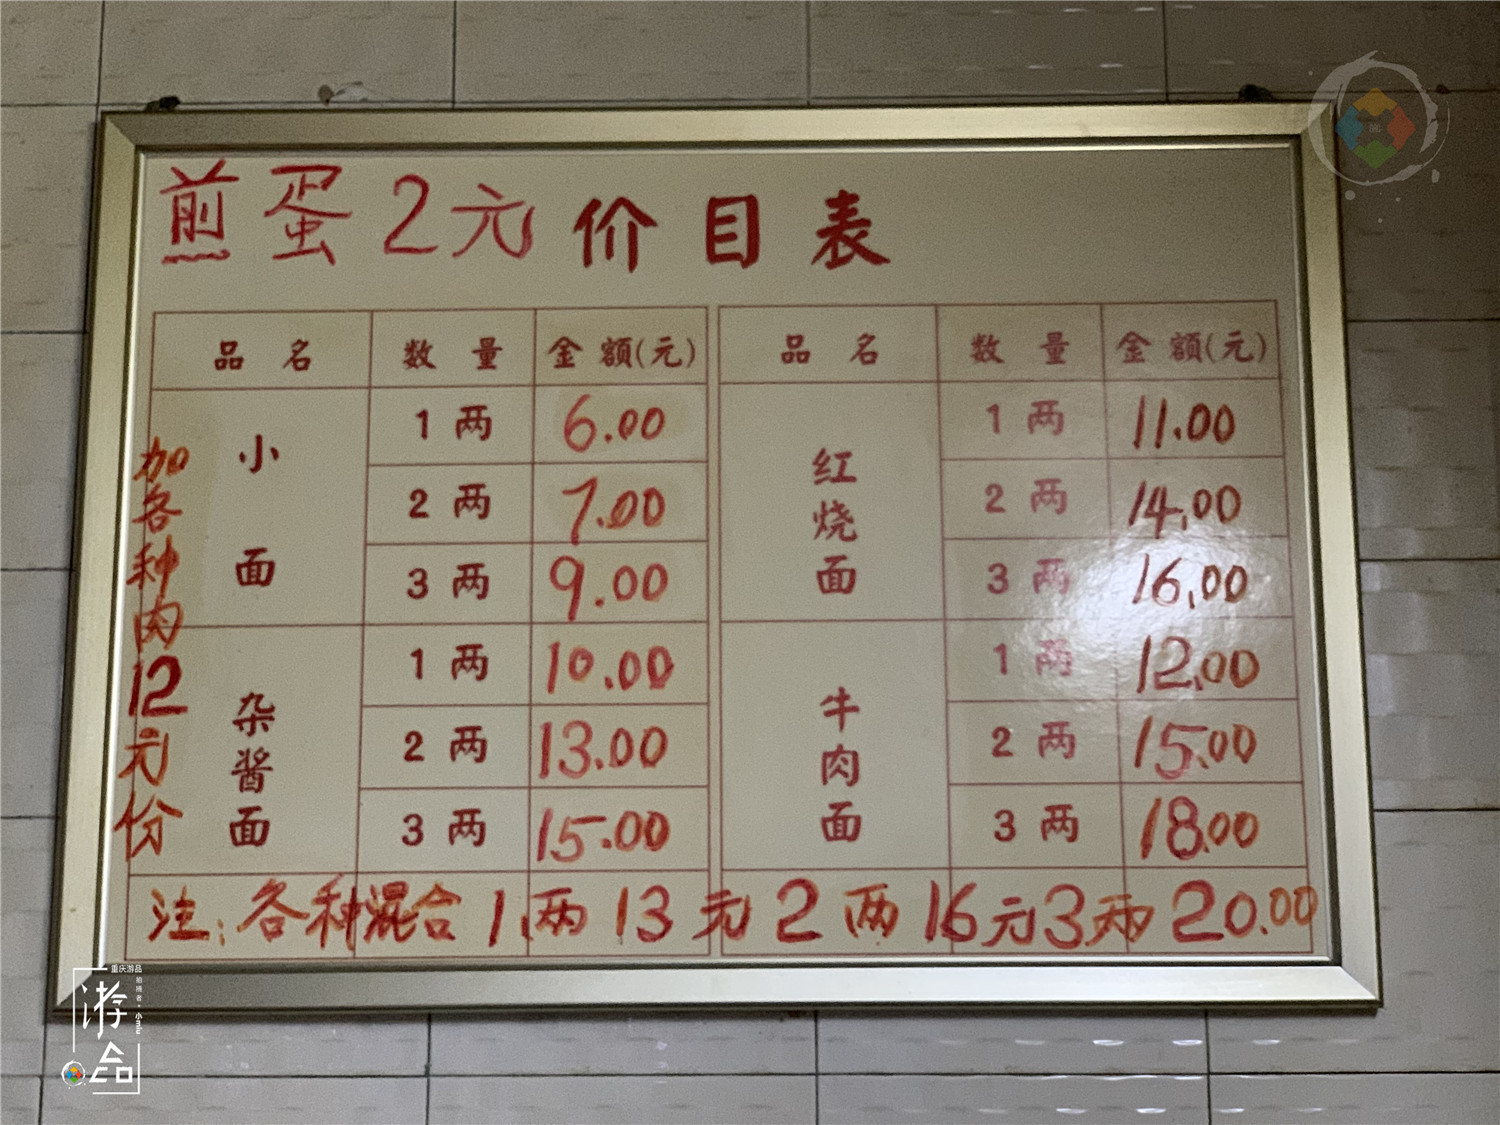 煎蛋2元 价目表
品名 数量 金额(元) 品名 数量 金额(元)
小面 1两 6.00 红烧面 1两 11.00
2两 7.00 2两 14.00
3两 9.00 3两 16.00
杂酱面 1两 10.00 牛肉面 1两 12.00
2两 13.00 2两 15.00
3两 15.00 3两 18.00
加各种肉12元份
注:各种混合1两13元2两16元3两20.00
重庆游品
拍摄者·小miu
游品